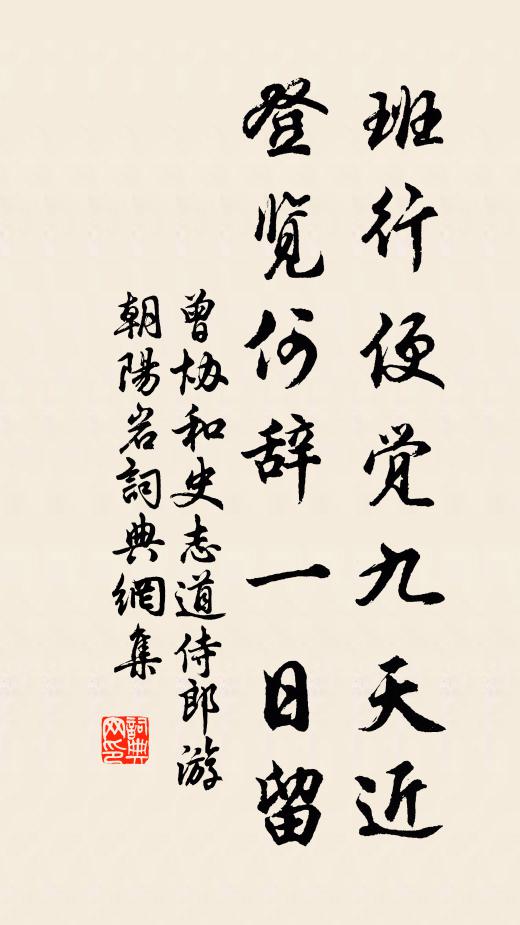 班行便觉九天近
登览何辞一日留
曾协和史志道侍郎游
朝陽岩詞典網集
詞典網印